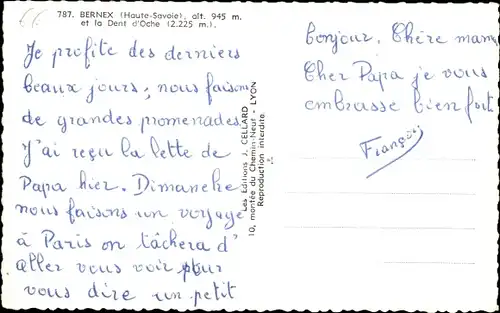 787. BERNEX (Haute-Savoie), alt. 945 m.
et la Dent d'Oche (2.225 m.).
Je profite des derniers
beaux jours, nous faisons
de grandes promenades.
J'ai reçu la lettre de
Papa hier. Dimanche
nous faisons un voyage
à Paris on tâchera d'
aller vous voir pour
vous dire un petit
Les Editions J. CELLARD
10, montée du Chemin-Neuf - LYON
Reproduction interdite.
bonjour. Chère mam
Cher Papa je vous
embrasse bien fort
François